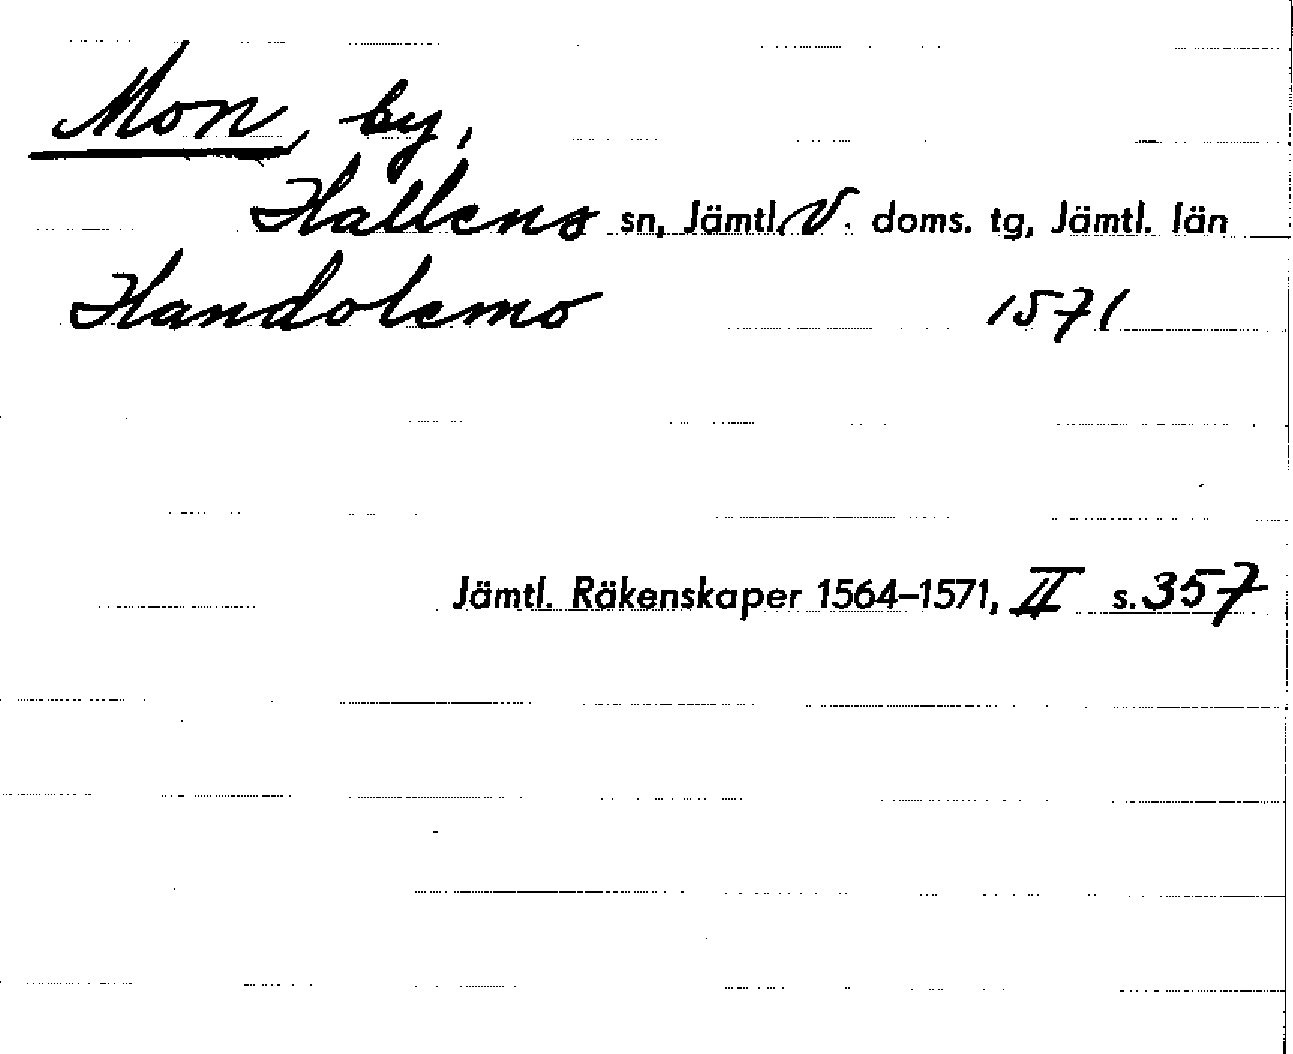 Mon, by,
Hallens sn, Jämtl. V. doms. tg, Jämtl. län
Handolemo 1571
Jämtl. Räkenskaper 1564–1571, II s. 357